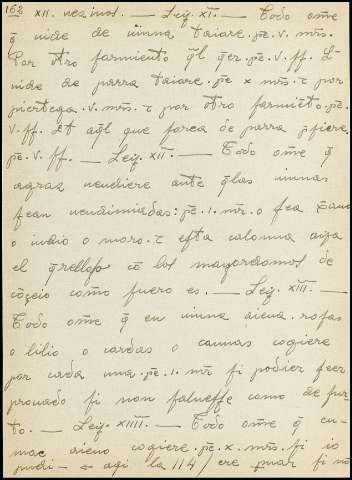 162 XII. vezinos. — Ley. XI. — Todo ome
q̃ uide de uinna taiare .pe. v. mr̃s.
Por otro sarmiento q̃l q̃er .pe. v. ss. Et
uide de parra taiare .pe x mr̃s. τ por
piertega .v. mr̃s. τ por otro sarmiẽto .pe.
v. ss. Et aq̃l que forca de parra p̃siere
pe. v. ss. — Ley. XII. — Todo ome q̃
agraz uendiere ante q̃las uinnas
sean uendimiadas: pe. 1. mr̃. o sea
o iudio o moro. τ esta calonna aya
el q̃relloso cõ los mayordomos de
cõceio como fuero es. — Ley. XIII. —
Todo ome q̃ en uinna aiena . rosas
o lilio o cardos o cannas cogiere
por cada una .pe. 1. mr̃ si podier seer
prouado si non saluesse como de fur
to. — Ley. XIIII. — Todo ome q̃ çu-
mac aieno cogiere .pe. x. mr̃s. si lo
pudi- aqi la 114/ ere puar si nõ